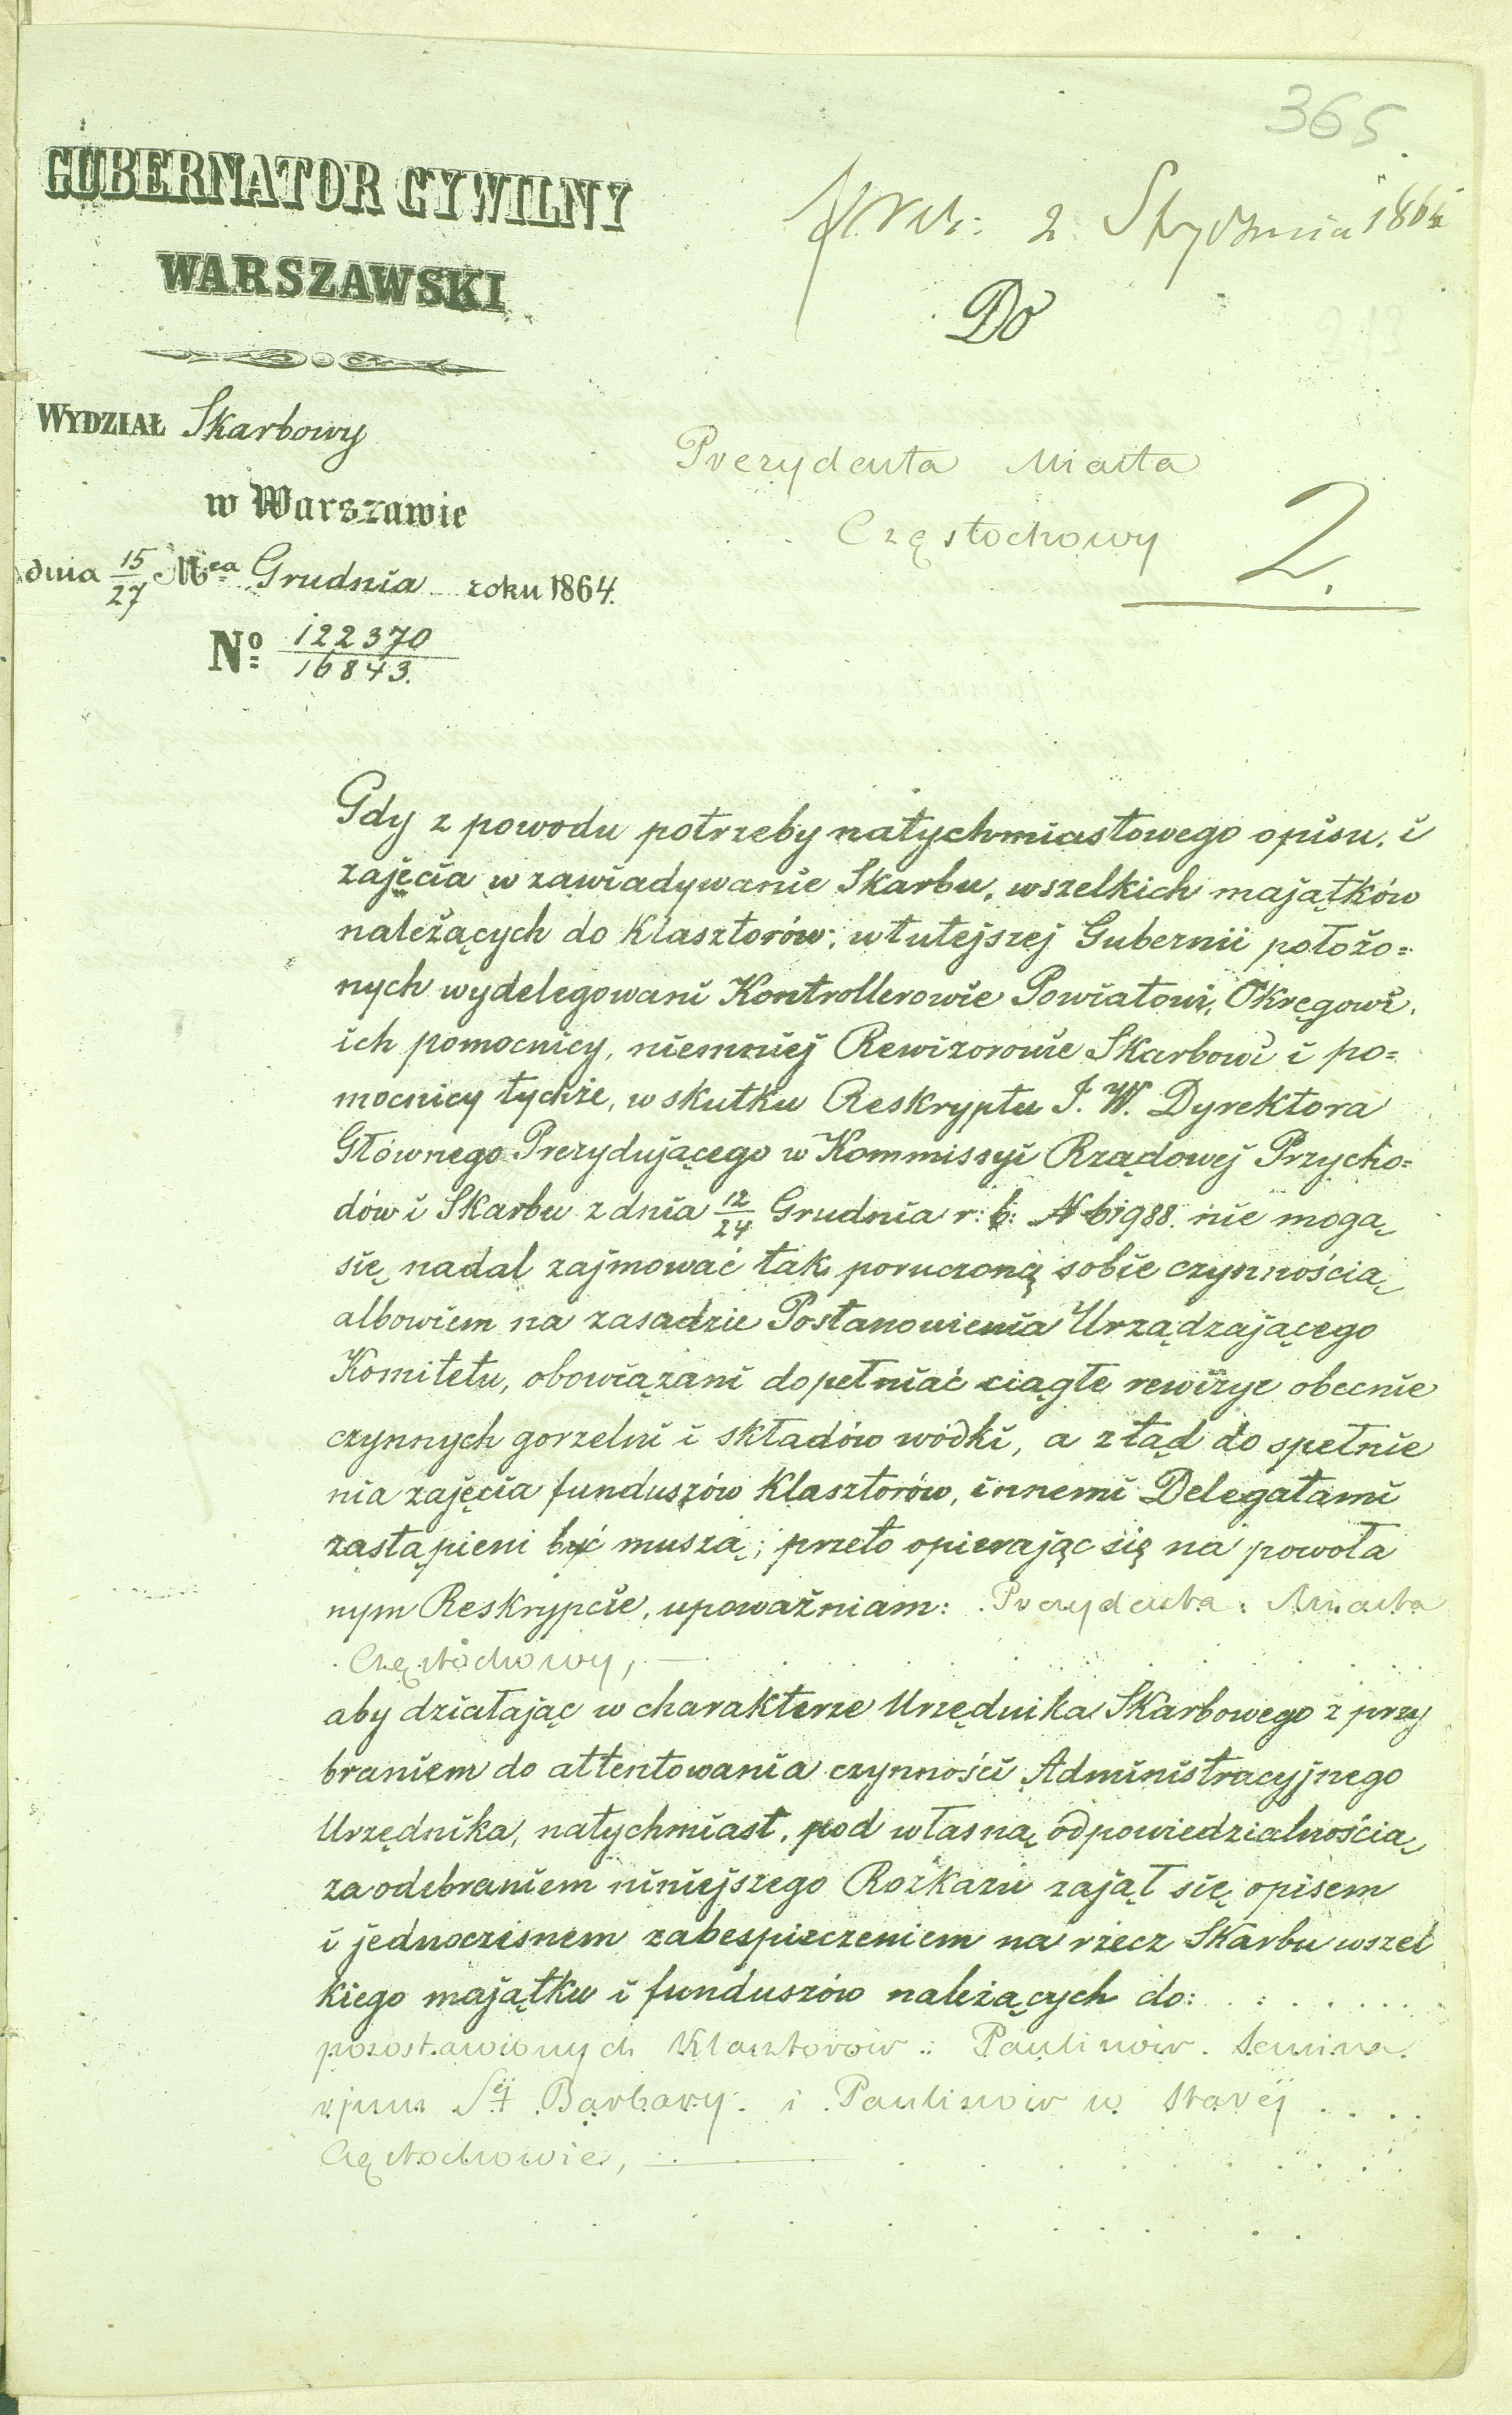 365
GUBERNATOR CYWILNY
WARSZAWSKI
2 Stycznia 1865
Do
WYDZIAŁ Skarbowy
Prezydenta Miasta
w Warszawie
Częstochowy
2.
dnia 15/27 Mca Grudnia roku 1864.
No 122370/16843.
Gdy z powodu potrzeby natychmiastowego opisu, i
zajęcia w zawiadywanie Skarbu, wszelkich majątków
należących do Klasztorów, w tutejszej Gubernii położo=
nych wydelegowani Kontrollerowie Powiatowi, Okręgowi,
ich pomocnicy, niemniej Rewizorowie Skarbowi i po=
mocnicy tychże, w skutku Reskryptu J. W. Dyrektora
Głównego Prezydującego w Kommissyi Rządowej Przycho=
dów i Skarbu z dnia 12/24 Grudnia r: b: N 61988. nie mogą
się nadal zajmować tak poruczoną sobie czynnością
albowiem na zasadzie Postanowienia Urządzającego
Komitetu, obowiązani dopełniać ciągłe rewizye obecnie
czynnych gorzelni i składów wódki, a ztąd do spełnie
nia zajęcia funduszów Klasztorów, innemi Delegatami
zastąpieni być muszą; przeto opierając się na powoła
nym Reskrypcie, upoważniam: Prezydenta Miasta
Częstochowy,
aby działając w charakterze Urzędnika Skarbowego z przy
braniem do attentowania czynności Administracyjnego
Urzędnika, natychmiast, pod własną odpowiedzialnością
za odebraniem niniejszego Rozkazu zajął się opisem
i jednoczesnem zabespieczeniem na rzecz Skarbu wszel
kiego majątku i funduszów należących do:
pozostawionych Klasztorów: Paulinów. Semina
rjum Stej Barbary. i Paulinów w Starej
Częstochowie,